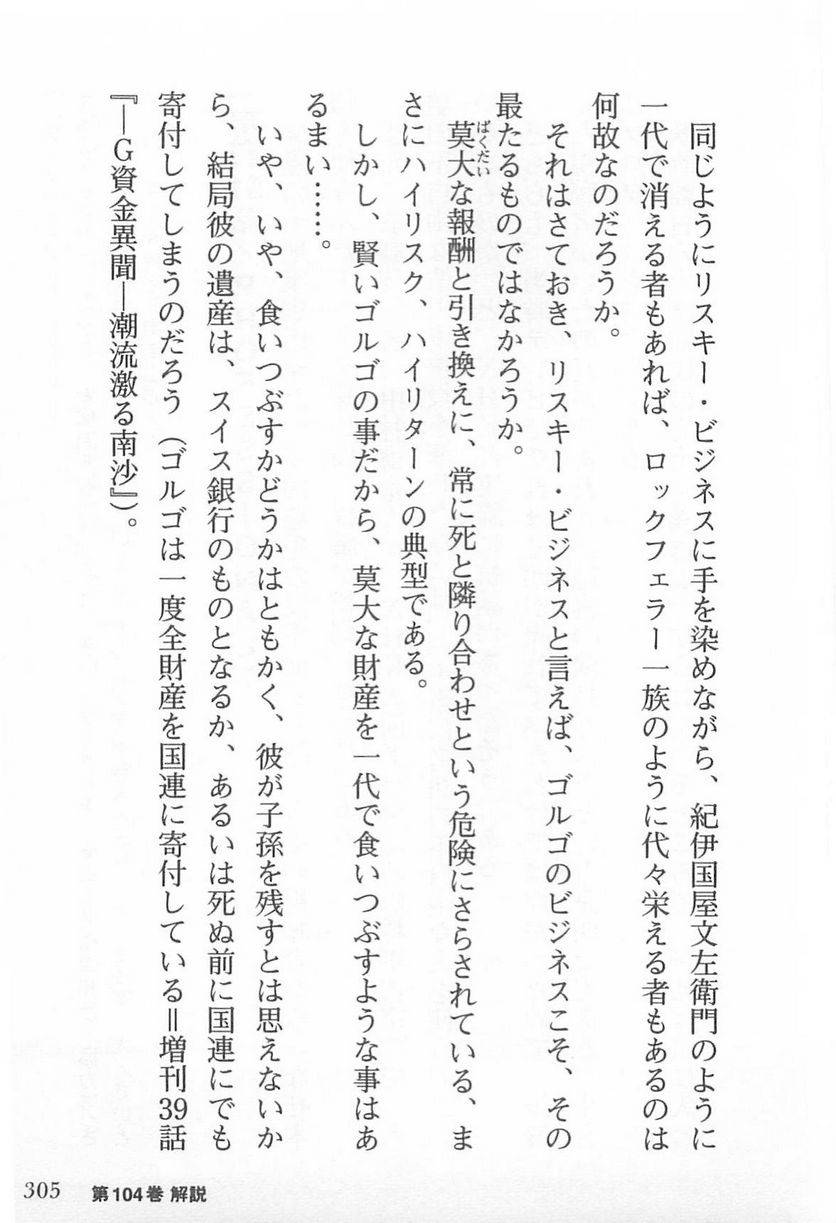 同じようにリスキー・ビジネスに手を染めながら、紀伊国屋文左衛門のように
一代で消える者もあれば、ロックフェラー一族のように代々栄える者もあるのは
何故なのだろうか。
それはさておき、リスキー・ビジネスと言えば、ゴルゴのビジネスこそ、その
最たるものではなかろうか。
莫大な報酬と引き換えに、常に死と隣り合わせという危険にさらされている、ま
ばくだい
さにハイリスク、ハイリターンの典型である。
しかし、賢いゴルゴの事だから、莫大な財産を一代で食いつぶすような事はあ
るまい……。
いや、いや、食いつぶすかどうかはともかく、彼が子孫を残すとは思えないか
ら、結局彼の遺産は、スイス銀行のものとなるか、あるいは死ぬ前に国連にでも
寄付してしまうのだろう（ゴルゴは一度全財産を国連に寄付している＝増刊39話
『―G資金異聞―潮流激る南沙』）。
305 第104巻 解説